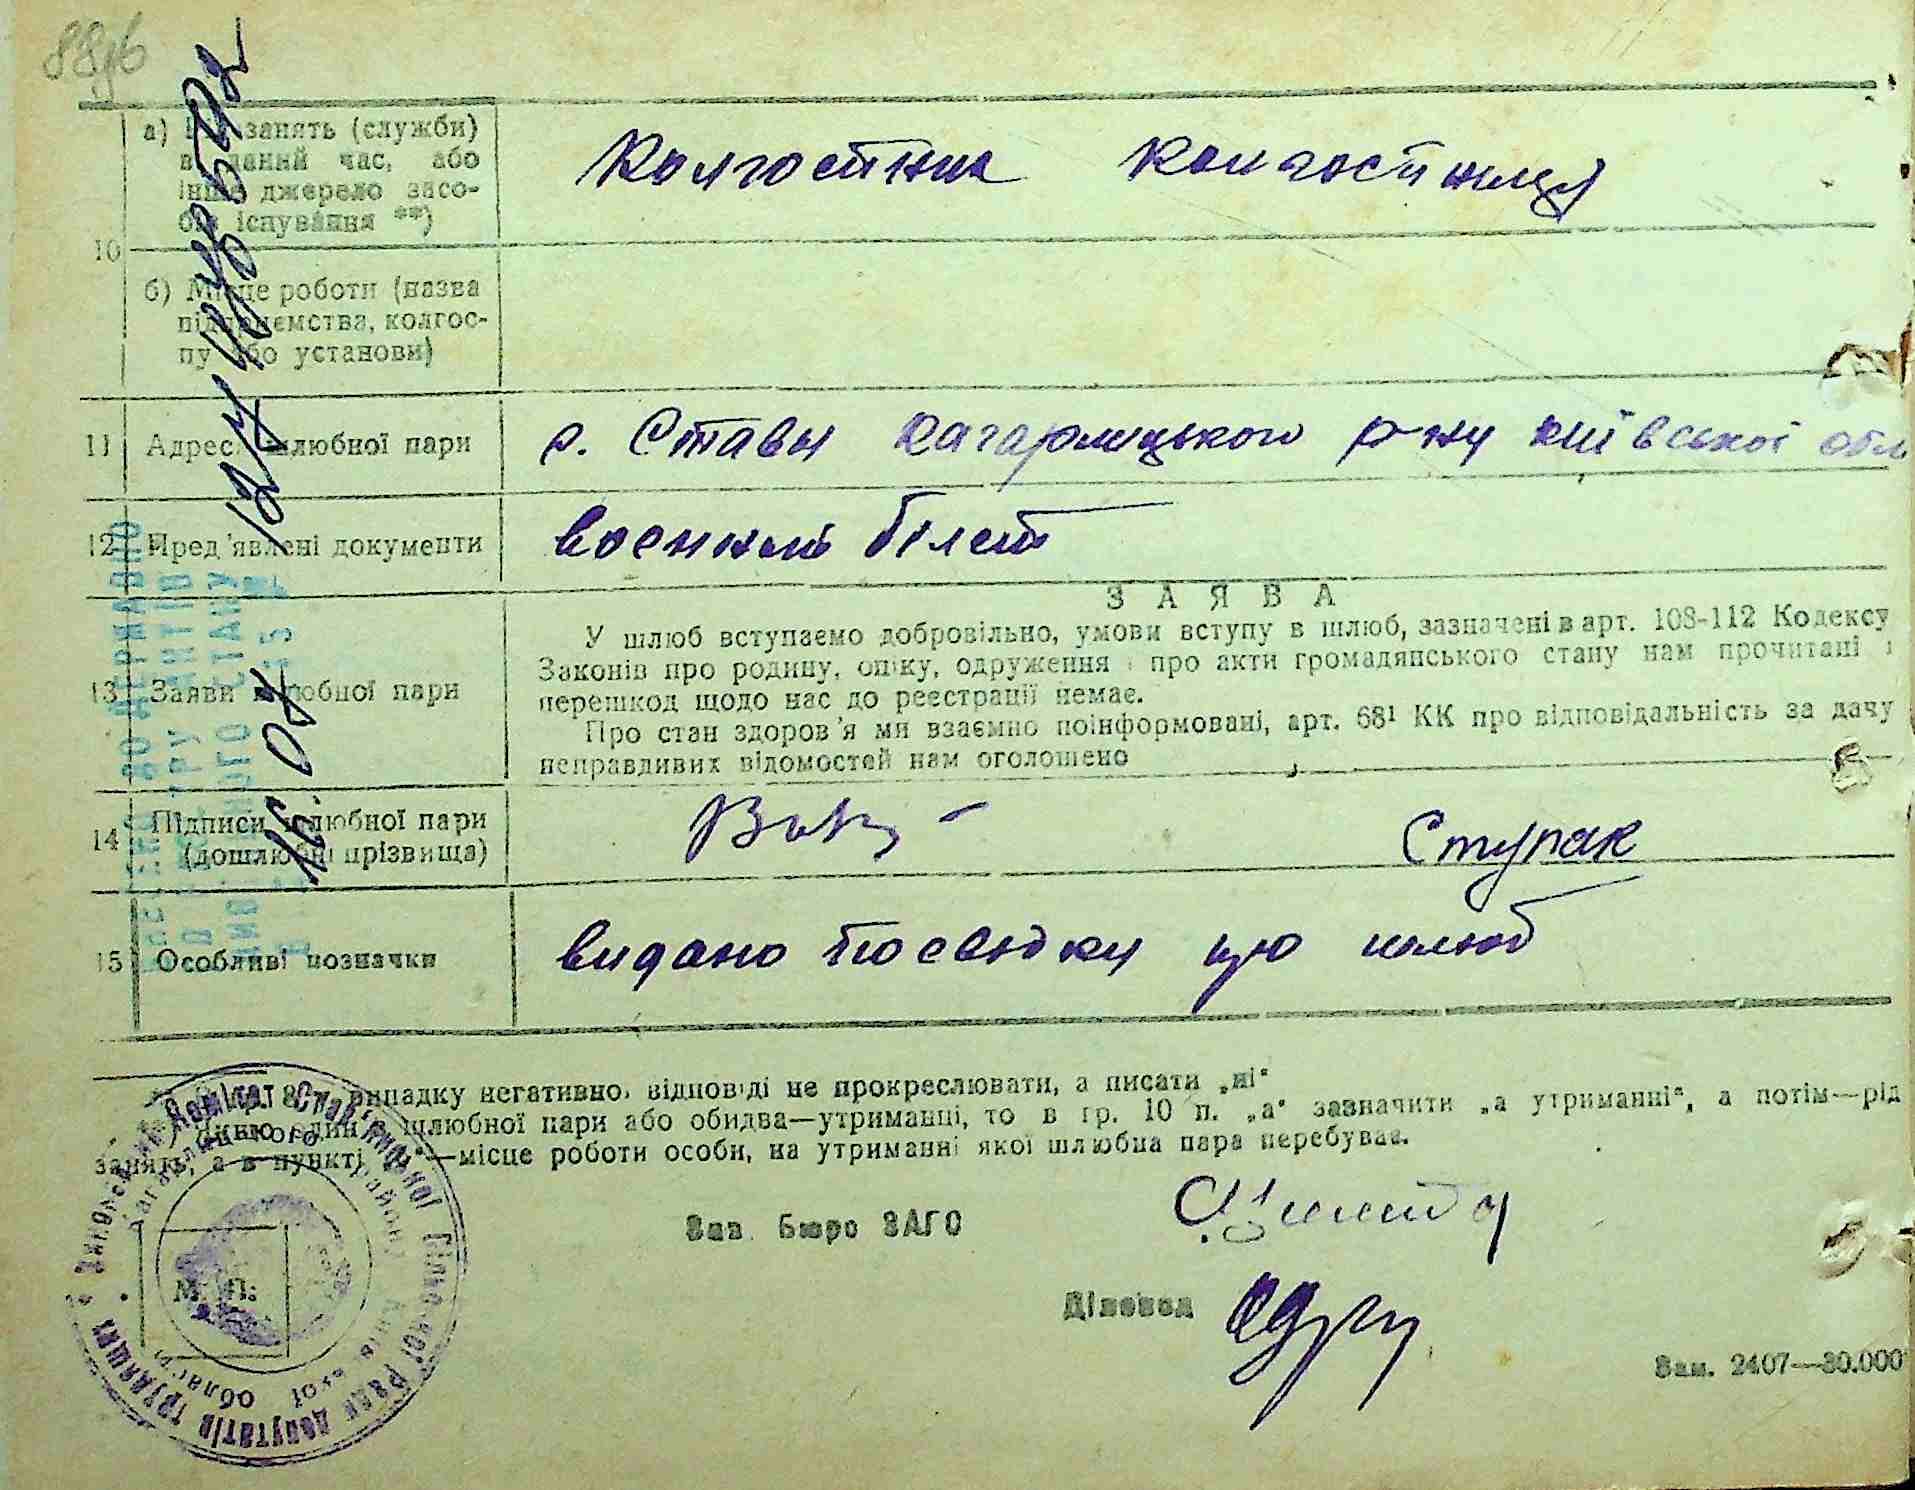 88
10
а) занять (служби)
в даний час, або
інше джерело засо-
бів існування **)
Колгоспник Колгоспниця
б) Місце роботи (назва
підприємства, колгос-
пу або установи)
11 Адреса шлюбної пари
с. Стави Кагарлицького р-ну Київської обл
12 Пред'явлені документи
военний білет
13 Заяви шлюбної пари
ЗАЯВА
У шлюб вступаємо добровільно, умови вступу в шлюб, зазначені в арт. 108-112 Кодексу
Законів про родину, опіку, одруження і про акти громадянського стану нам прочитані і
перешкод щодо нас до реєстрації немає.
Про стан здоров'я ми взаємно поінформовані, арт. 68¹ КК про відповідальність за дачу
неправдивих відомостей нам оголошено
14 Підписи шлюбної пари
(дошлюбні прізвища)
Ступак
15 Особливі позначки
видано посвідку про шлюб
випадку негативно, відповіді не прокреслювати, а писати „ні“
Якщо один з шлюбної пари або обидва—утриманці, то в гр. 10 п. „а“ зазначити „а утриманні“, а потім—рід
занять, а в пункті —місце роботи особи, на утриманні якої шлюбна пара перебуває.
Зав. Бюро ЗАГС
Діловод
М. П.
Зам. 2407—30.000
Виконавчий Комітет Став'янської Сільської Ради депутатів трудящих
Кагарлицького району Київської області